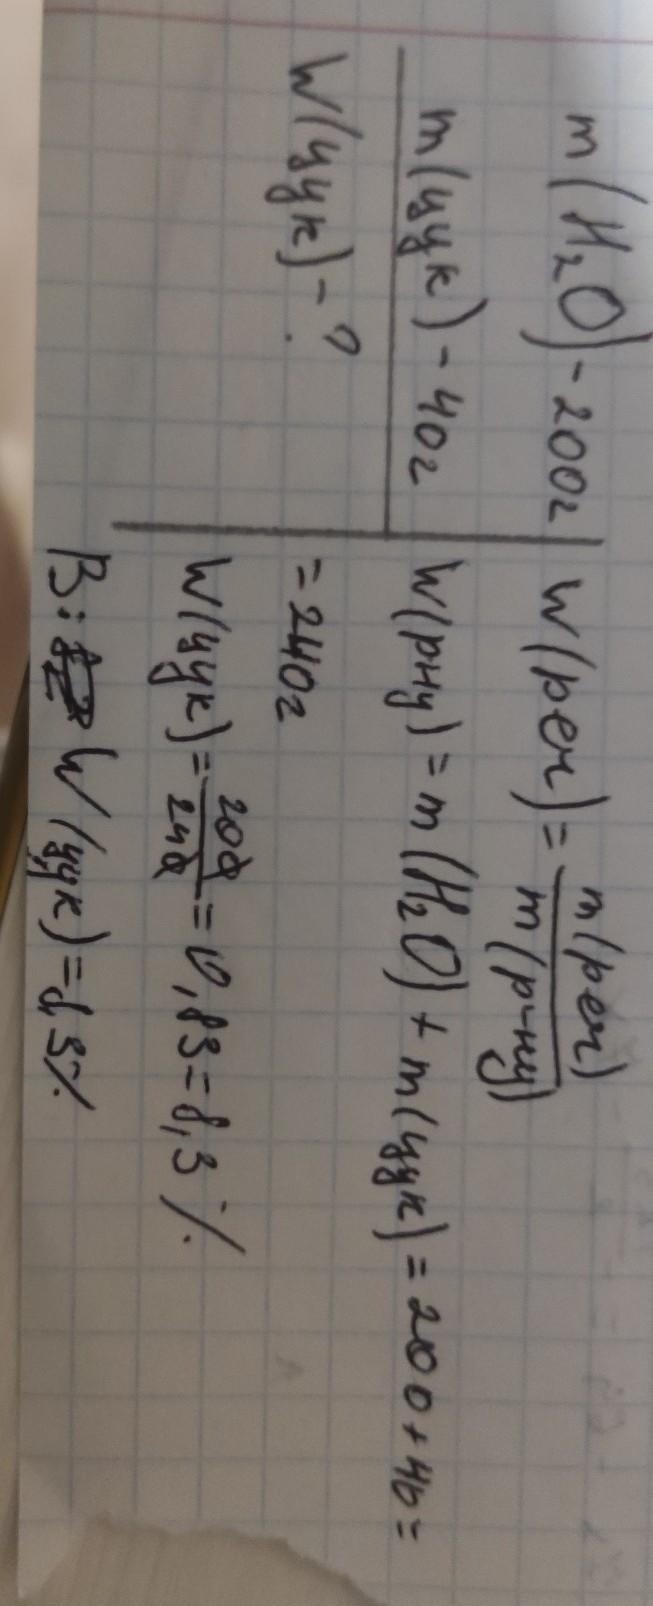 m(H₂O) - 200г
m(цук) - 40г
W(цук) - ?
W(реч) = m(реч) / m(р-ну)
W(рну) = m(H₂O) + m(цук) = 200 + 40 =
= 240г
W(цук) = 200 / 240 = 0,83 = 8,3 %
В: W(цук) = 8,3%